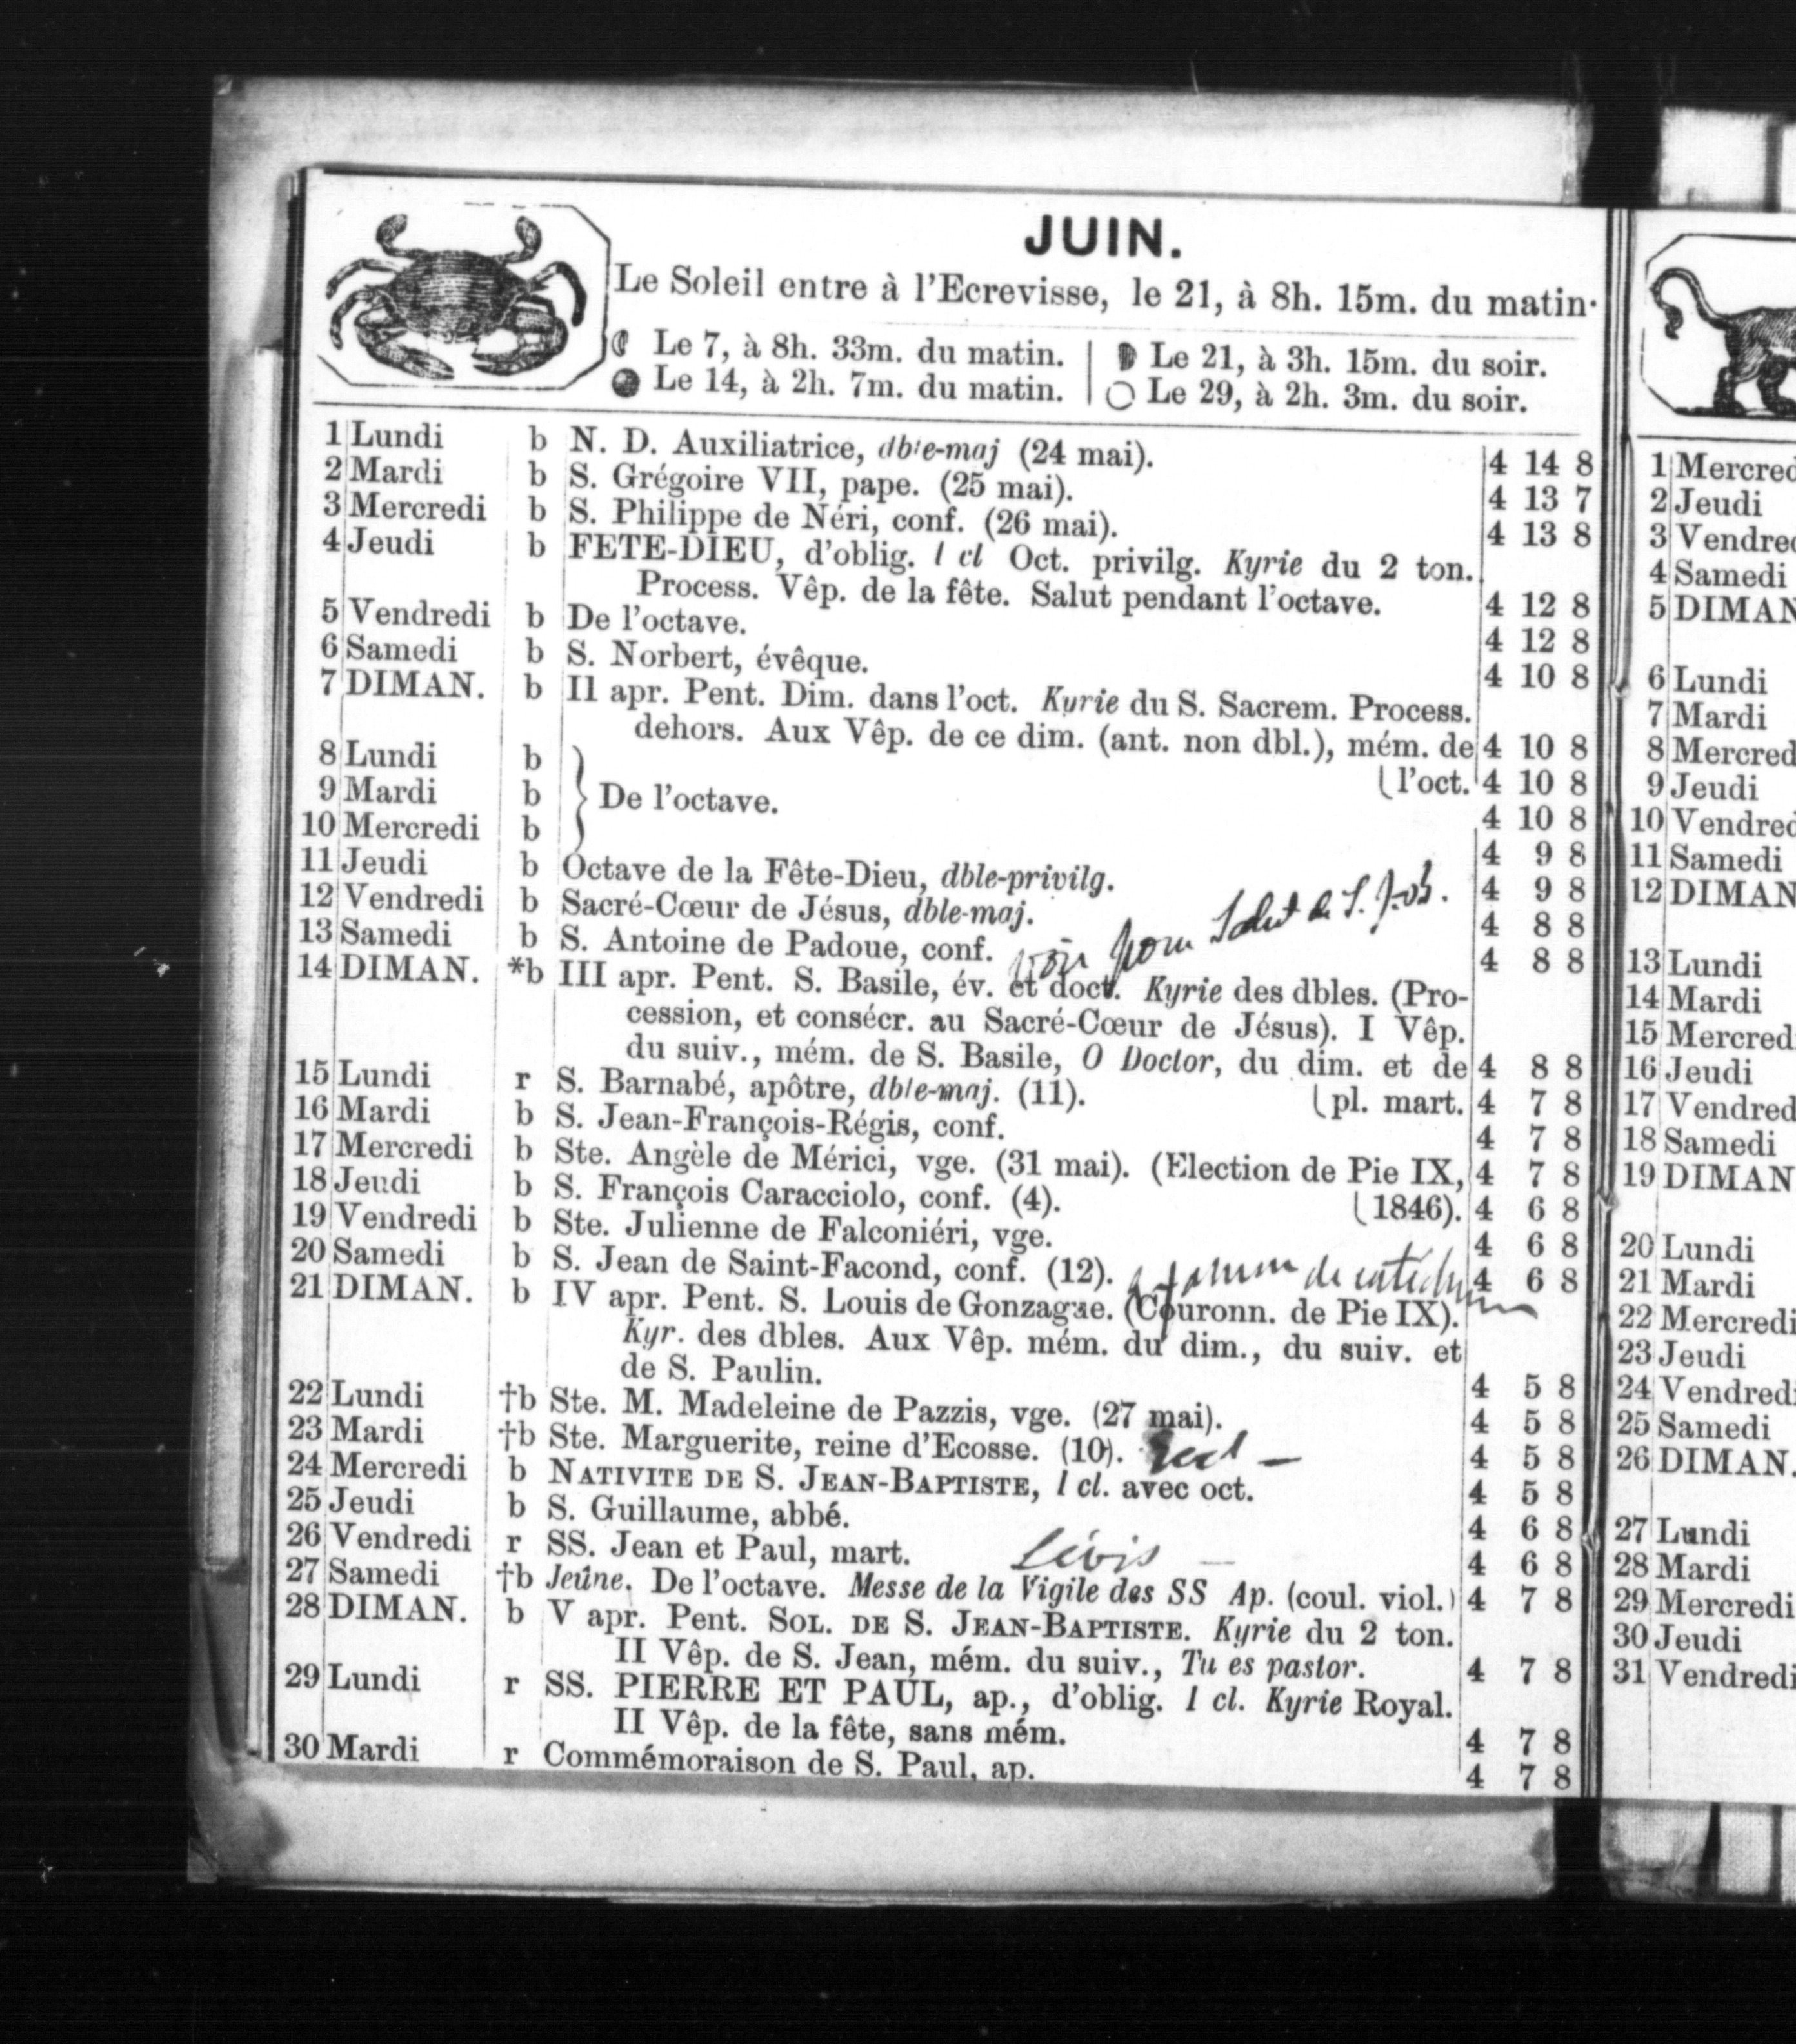 JUIN.
Le Soleil entre à l'Ecrevisse, le 21, à 8h. 15m. du matin·
Le 7, à 8h. 33m. du matin. | Le 21, à 3h. 15m. du soir.
Le 14, à 2h. 7m. du matin. | Le 29, à 2h. 3m. du soir.
1 Lundi b N. D. Auxiliatrice, dble-maj (24 mai). 4 14 8
2 Mardi b S. Grégoire VII, pape. (25 mai). 4 13 7
3 Mercredi b S. Philippe de Néri, conf. (26 mai). 4 13 8
4 Jeudi b FETE-DIEU, d'oblig. 1 cl Oct. privilg. Kyrie du 2 ton.
Process. Vêp. de la fête. Salut pendant l'octave. 4 12 8
5 Vendredi b De l'octave. 4 12 8
6 Samedi b S. Norbert, évêque. 4 10 8
7 DIMAN. b II apr. Pent. Dim. dans l'oct. Kyrie du S. Sacrem. Process.
dehors. Aux Vêp. de ce dim. (ant. non dbl.), mém. de 4 10 8
8 Lundi b (l'oct. 4 10 8
9 Mardi b } De l'octave. 4 10 8
10 Mercredi b 4 9 8
11 Jeudi b Octave de la Fête-Dieu, dble-privilg. 4 9 8
12 Vendredi b Sacré-Cœur de Jésus, dble-maj. 4 8 8
13 Samedi b S. Antoine de Padoue, conf. pour Salut de S. 4 8 8
14 DIMAN. *b III apr. Pent. S. Basile, év. et doct. Kyrie des dbles. (Pro-
cession, et consécr. au Sacré-Cœur de Jésus). I Vêp.
du suiv., mém. de S. Basile, O Doctor, du dim. et de 4 8 8
15 Lundi r S. Barnabé, apôtre, dble-maj. (11). (pl. mart. 4 7 8
16 Mardi b S. Jean-François-Régis, conf. 4 7 8
17 Mercredi b Ste. Angèle de Mérici, vge. (31 mai). (Election de Pie IX, 4 7 8
18 Jeudi b S. François Caracciolo, conf. (4). (1846). 4 6 8
19 Vendredi b Ste. Julienne de Falconiéri, vge. 4 6 8
20 Samedi b S. Jean de Saint-Facond, conf. (12). de 4 6 8
21 DIMAN. b IV apr. Pent. S. Louis de Gonzague. (Couronn. de Pie IX).
Kyr. des dbles. Aux Vêp. mém. du dim., du suiv. et
de S. Paulin. 4 5 8
22 Lundi †b Ste. M. Madeleine de Pazzis, vge. (27 mai). 4 5 8
23 Mardi †b Ste. Marguerite, reine d'Ecosse. (10). 4 5 8
24 Mercredi b NATIVITE DE S. JEAN-BAPTISTE, 1 cl. avec oct. 4 5 8
25 Jeudi b S. Guillaume, abbé. 4 6 8
26 Vendredi r SS. Jean et Paul, mart. Lévis — 4 6 8
27 Samedi †b Jeûne. De l'octave. Messe de la Vigile des SS Ap. (coul. viol.) 4 7 8
28 DIMAN. b V apr. Pent. SOL. DE S. JEAN-BAPTISTE. Kyrie du 2 ton.
II Vêp. de S. Jean, mém. du suiv., Tu es pastor. 4 7 8
29 Lundi r SS. PIERRE ET PAUL, ap., d'oblig. 1 cl. Kyrie Royal.
II Vêp. de la fête, sans mém. 4 7 8
30 Mardi r Commémoraison de S. Paul, ap. 4 7 8
1 Mercred
2 Jeudi
3 Vendred
4 Samedi
5 DIMAN
6 Lundi
7 Mardi
8 Mercred
9 Jeudi
10 Vendred
11 Samedi
12 DIMAN
13 Lundi
14 Mardi
15 Mercredi
16 Jeudi
17 Vendred
18 Samedi
19 DIMAN
20 Lundi
21 Mardi
22 Mercredi
23 Jeudi
24 Vendredi
25 Samedi
26 DIMAN.
27 Lundi
28 Mardi
29 Mercredi
30 Jeudi
31 Vendredi